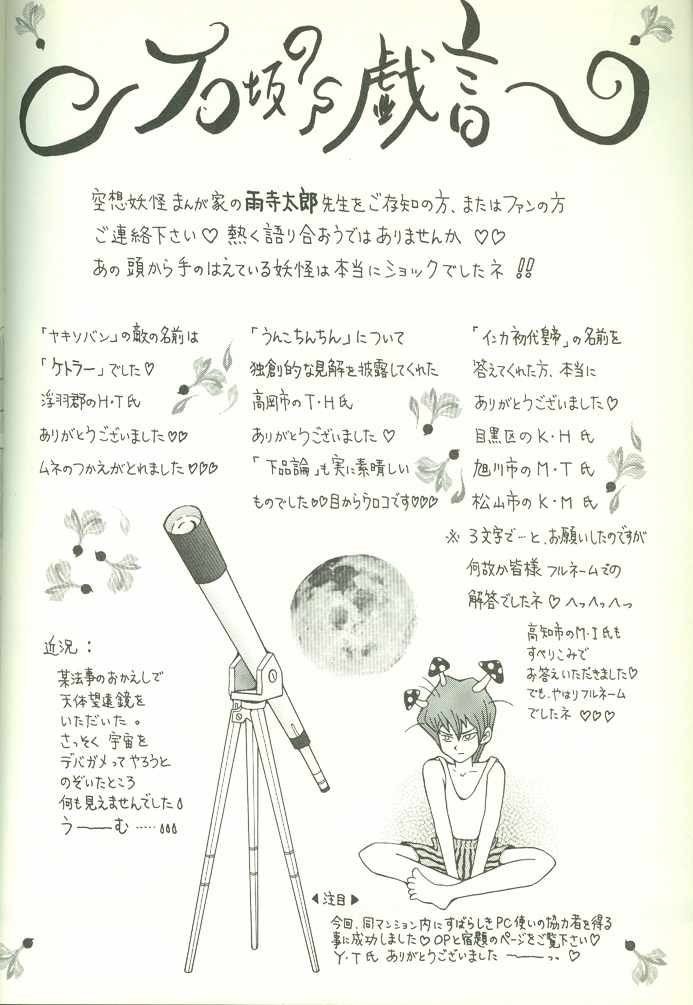 石坂の戯言
空想妖怪まんが家の雨寺太郎先生をご存知の方、またはファンの方
ご連絡下さい♡ 熱く語り合おうではありませんか ♡♡
あの頭から手のはえている妖怪は本当にショックでしたネ !!
「ヤキソバン」の敵の名前は
「ケトラー」でした♡
浮羽郡のH・T氏
ありがとうございました♡♡
ムネのつかえがとれました♡♡♡
「うんこちんちん」について
独創的な見解を披露してくれた
高岡市のT・H氏
ありがとうございました♡
「下品論」も実に素晴しい
ものでした♡♡目からウロコです♡♡♡
「インカ初代皇帝」の名前を
答えてくれた方、本当に
ありがとうございました♡
目黒区のK・H氏
旭川市のM・T氏
松山市のK・M氏
※ 3文字で…と、お願いしたのですが
何故か皆様フルネームでの
解答でしたネ♡へっへっへっ
高知市のM・I氏も
すべりこみで
お答えいただきました♡
でも、やはりフルネーム
でしたネ ♡♡♡
近況：
某法事のおかえしで
天体望遠鏡を
いただいた。
さっそく 宇宙を
デバガメってやろうと
のぞいたところ
何も見えませんでした
う——む ……
◀注目▶
今回、同マンション内にすばらしきPC使いの協力者を得る
事に成功しました♡OPと宿題のページをご覧下さい♡
Y・T氏 ありがとうございました ——っっ ♡